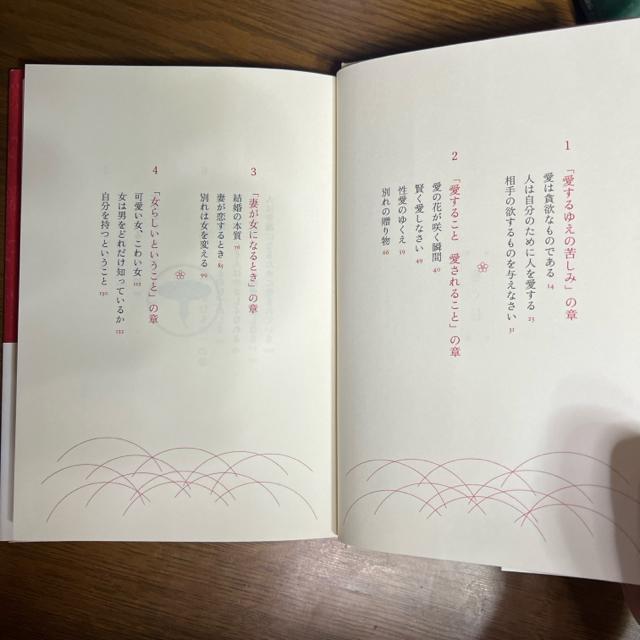 1
「愛するゆえの苦しみ」の章
愛は貪欲なものである 14
人は自分のために人を愛する 23
相手の欲するものを与えなさい 31
2
「愛すること 愛されること」の章
愛の花が咲く瞬間 40
賢く愛しなさい 49
性愛のゆくえ 59
別れの贈り物 66
3
「妻が女になるとき」の章
結婚の本質 76
妻が恋するとき 85
別れは女を変える 99
4
「女らしいということ」の章
可愛い女、こわい女 112
女は男をどれだけ知っているか 122
自分を持つということ 130